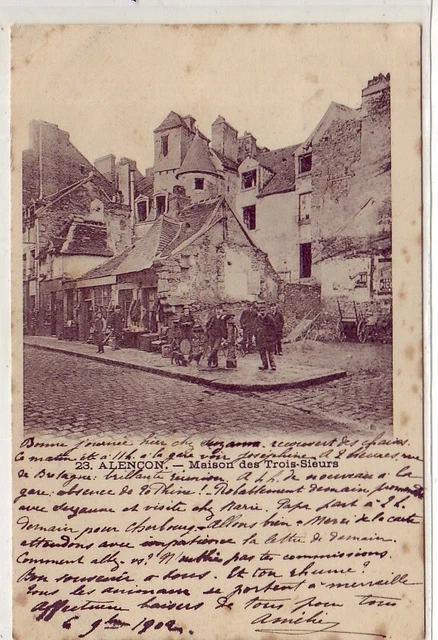 Bonne journée hier chez Suzanne. recouvert des chaises.
Ce matin été à 11 h. à la gare voir Joséphine. A 2 heures, rue
23. ALENÇON. — Maison des Trois-Sieurs
de Bretagne: brillante réunion. A 4 h. de nouveau à la
gare: absence de !- Rétablement demain promenade
avec Suzanne et visite chez Marie. Papa part à 2 h.
demain pour Cherbourg. Allons bien. Merci de la carte
attendons avec impatience la lettre de demain.
Comment allez vs? N'oublie pas tes commissions.
Bon souvenir à tous. Et ton rhume?
Tous les animaux se portent à merveille
Affectueux baisers de tous pour tous
6 9bre 1902. Amélie